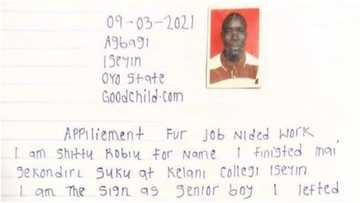 09-03-2021
Agbagi
Iseyin
Oyo State
Goodchild.com
Appiliement Fur Job Nided Work,
I am Shittu Robiu For Name I finisted mai
Sekondiri Suku at Kelani Collegi Iseyin
I am The Sign as Senior boy I lefted